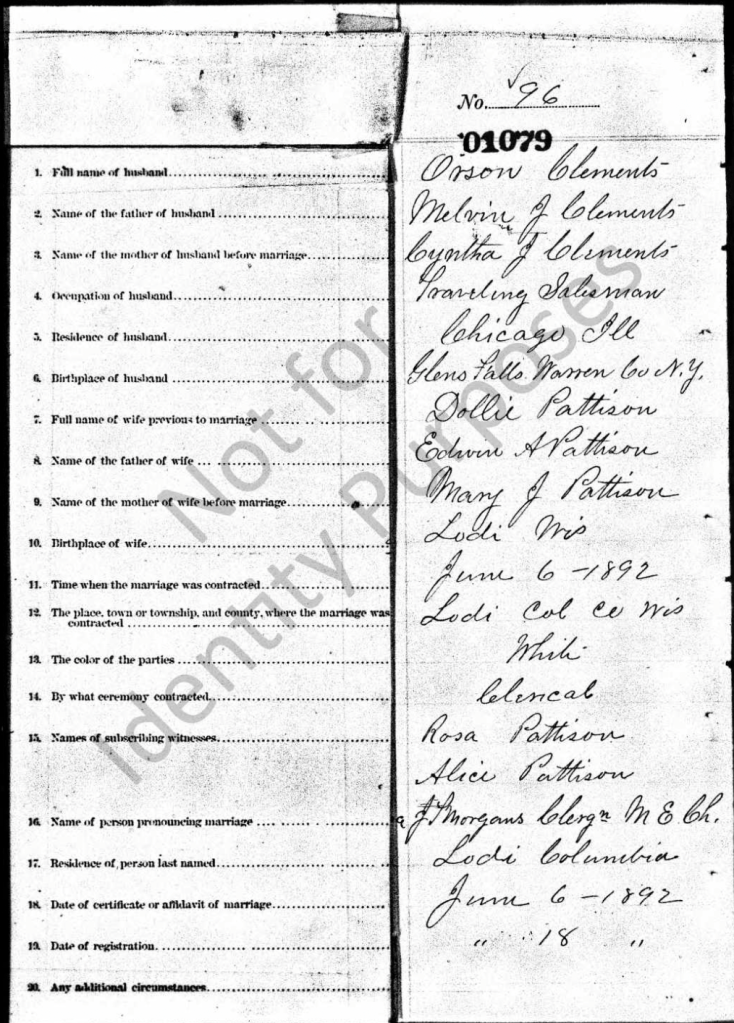 No. 96
01079
1. Full name of husband Orson Clements
2. Name of the father of husband Melvin J Clements
3. Name of the mother of husband before marriage Cyntha J Clements
4. Occupation of husband Traveling Salesman
5. Residence of husband Chicago Ill
6. Birthplace of husband Glens Falls Warren Co N.Y.
7. Full name of wife previous to marriage Dollie Pattison
8. Name of the father of wife Edwin A Pattison
9. Name of the mother of wife before marriage Mary J Pattison
10. Birthplace of wife Lodi Wis
11. Time when the marriage was contracted June 6 - 1892
12. The place, town or township, and county, where the marriage was
contracted Lodi Col Co Wis
13. The color of the parties White
14. By what ceremony contracted Clerical
15. Names of subscribing witnesses Rosa Pattison
Alice Pattison
16. Name of person pronouncing marriage Clergn M E Ch.
17. Residence of person last named Lodi Columbia
18. Date of certificate or affidavit of marriage June 6 - 1892
19. Date of registration " 18 "
20. Any additional circumstances
Not for
Identity Purposes